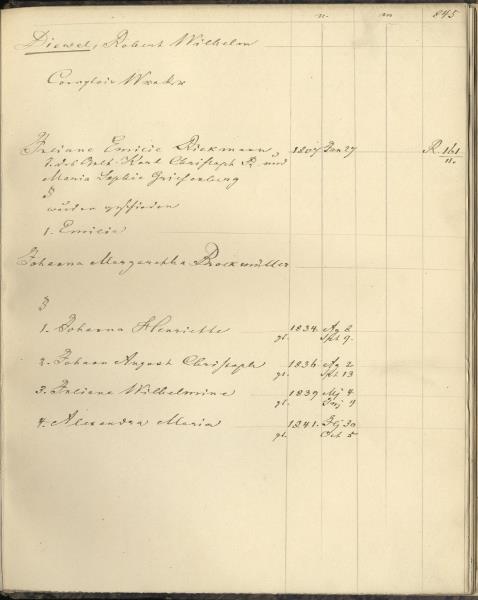 n. m 845
Diewel, Robert Wilhelm
Comptoir
Juliane Emilie Dieckmann 1807 Jan 27 R. 161
Karl Christoph D. und 11.
Maria Sophie
§
wurden geschieden
1. Emilie
Johanna Margaretha Brockmüller
§
1. Johanna Henriette 1834. Ag 8
gt. Spt 9.
2. Johann August Christoph 1836. Ag 2
gt. Spt 13
3. Juliane Wilhelmine 1839 Mj 4
gt. Jnj 9
4. Alexandra Maria 1841. Jlj 30
gt. Oct 5